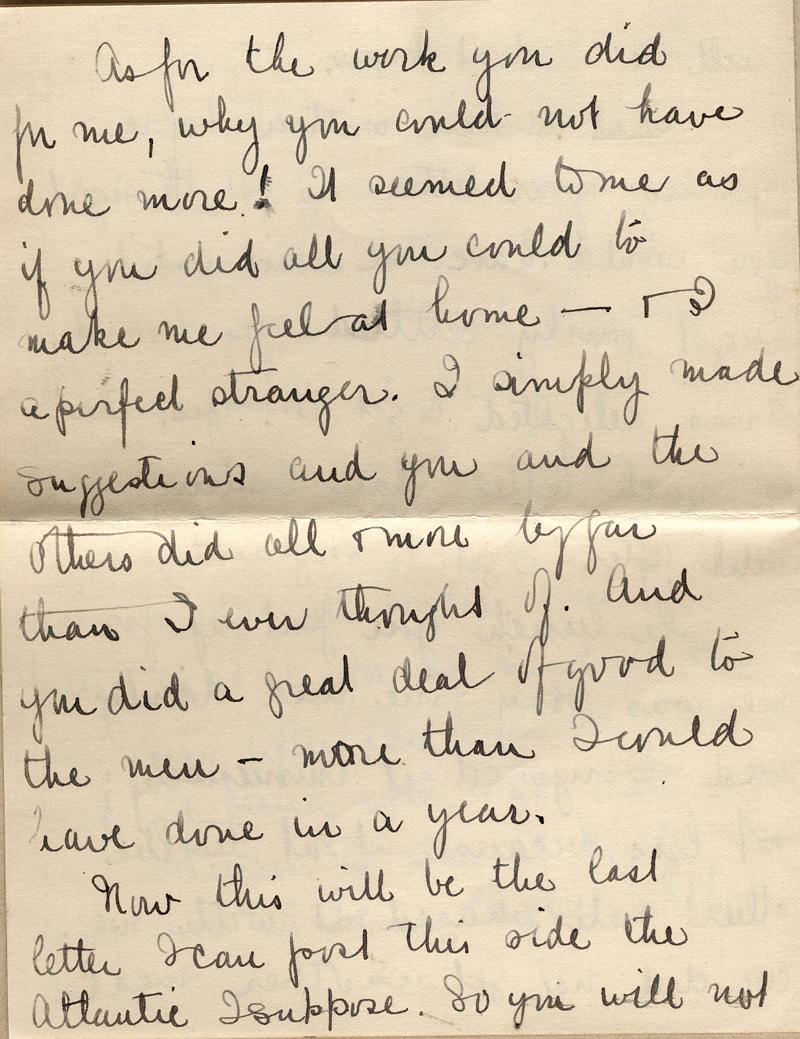 As for the work you did
for me, why you could not have
done more! It seemed to me as
if you did all you could to
make me feel at home — & I
a perfect stranger. I simply made
suggestions and you and the
others did all & more by far
than I ever thought of. And
you did a great deal of good to
the men – more than I could
have done in a year.
Now this will be the last
letter I can post this side the
Atlantic I suppose. So you will not